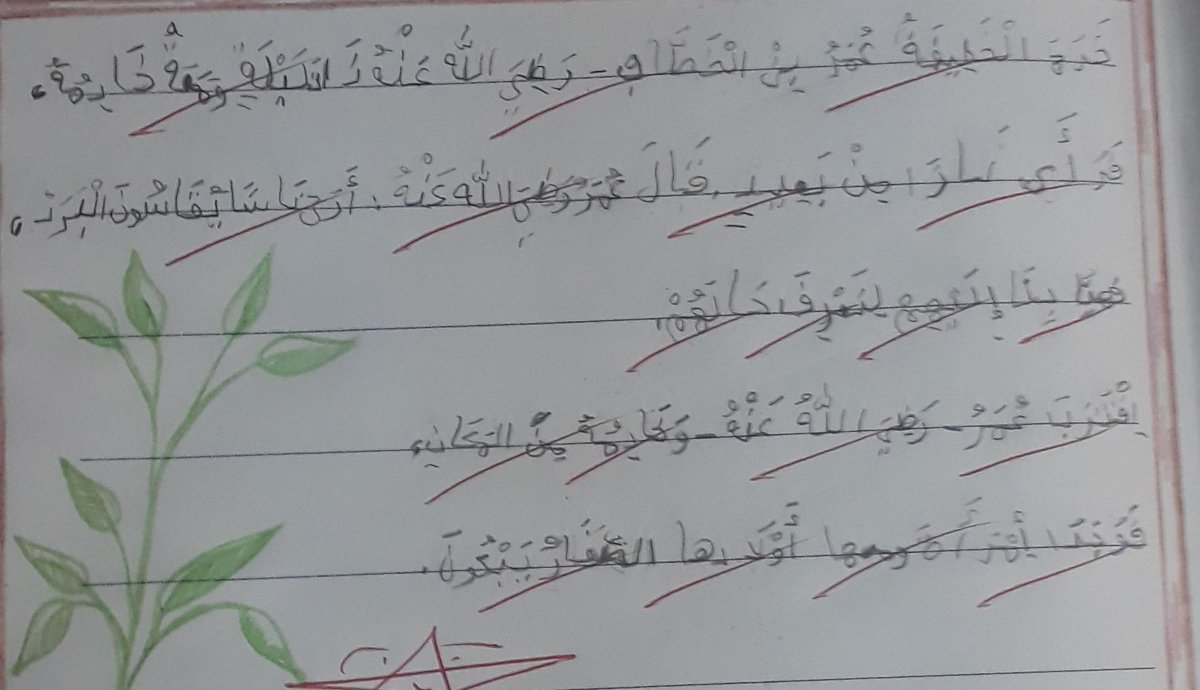 خَرَجَ الْخَلِيفَةُ عُمَرُ بِنُ الْخَطَّابِ - رَضِيَ اللّٰهُ عَنْهُ لَيْلَةً وَمَعَهُ خَادِمُهُ،
فَرَأَى نَارًا مِنْ بَعِيدٍ. قَالَ عُمَرُ رَضِيَ اللّٰهُ عَنْهُ: أُنَاسًا يُقَاسُونَ الْبَرْدَ،
هَيَّا بِنَا إِلَيْهِمْ لِنَعْرِفَ حَالَهُمْ.
اِقْتَرَبَ عُمَرُ - رَضِيَ اللّٰهُ عَنْهُ - وَخَادِمُهُ مِنَ الْمَكَانِ،
فَوَجَدَا امْرَأَةً وَمَعَهَا أَوْلَادُهَا الصِّغَارُ يَبْكُونَ.